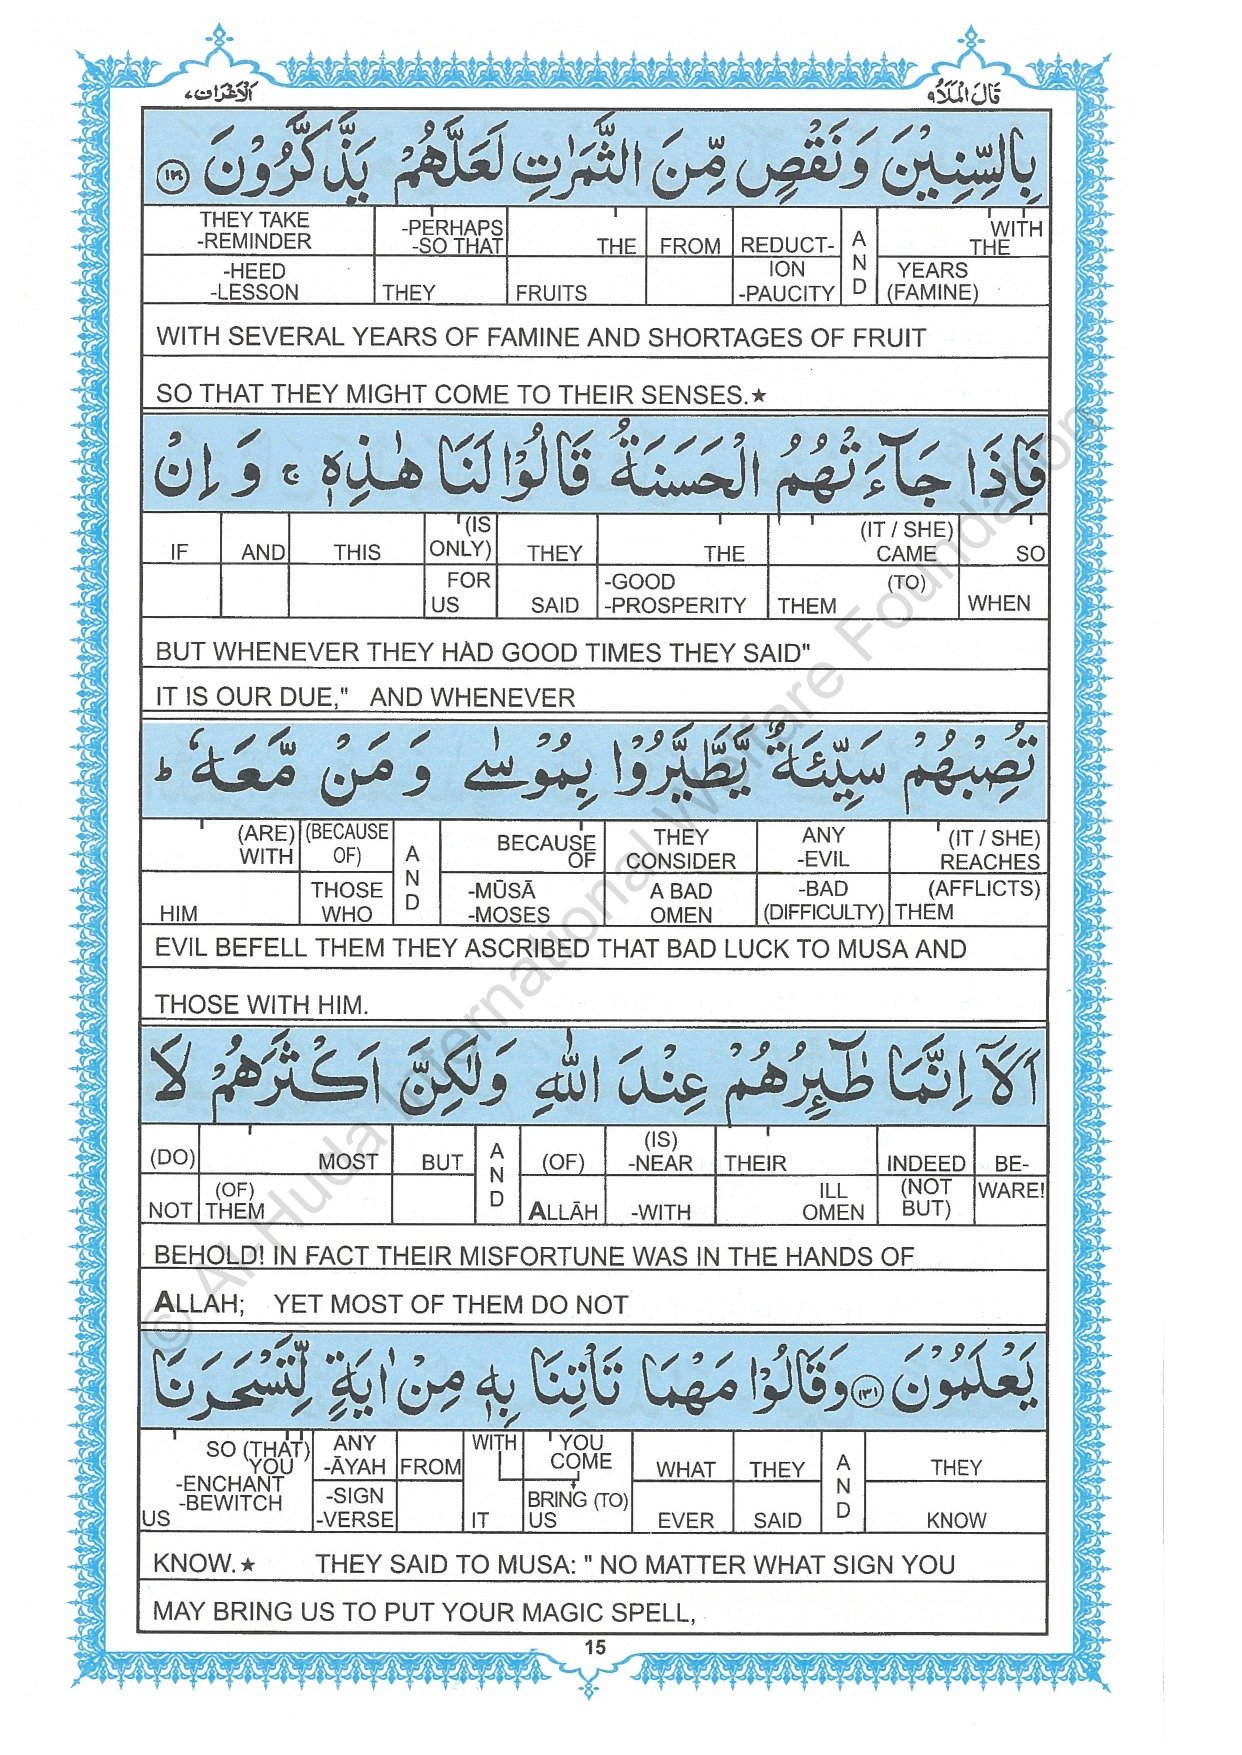 الاعراف ٧ قال الملأ ٩
بِالسِّنِيْنَ وَنَقْصٍ مِّنَ الثَّمَرٰتِ لَعَلَّهُمْ يَذَّكَّرُوْنَ ﴿۱۳۰﴾
THEY TAKE -REMINDER -PERHAPS -SO THAT THE FROM REDUCT- AND WITH THE
-HEED -LESSON THEY FRUITS ION -PAUCITY YEARS (FAMINE)
WITH SEVERAL YEARS OF FAMINE AND SHORTAGES OF FRUIT
SO THAT THEY MIGHT COME TO THEIR SENSES.★
فَاِذَا جَآءَتْهُمُ الْحَسَنَةُ قَالُوْا لَنَا هٰذِهٖ ۚ وَ اِنْ
IF AND THIS (IS ONLY) THEY THE (IT / SHE) CAME SO
FOR US SAID -GOOD -PROSPERITY (TO) THEM WHEN
BUT WHENEVER THEY HAD GOOD TIMES THEY SAID"
IT IS OUR DUE," AND WHENEVER
تُصِبْهُمْ سَيِّئَةٌ يَّطَّيَّرُوْا بِمُوْسٰى وَ مَنْ مَّعَهٗ ؕ
(ARE) WITH (BECAUSE OF) AND BECAUSE OF THEY CONSIDER ANY -EVIL (IT / SHE) REACHES
HIM THOSE WHO -MŪSĀ -MOSES A BAD OMEN -BAD (DIFFICULTY) (AFFLICTS) THEM
EVIL BEFELL THEM THEY ASCRIBED THAT BAD LUCK TO MUSA AND
THOSE WITH HIM.
اَلَاۤ اِنَّمَا طٰٓئِرُهُمْ عِنْدَ اللّٰهِ وَلٰكِنَّ اَكْثَرَهُمْ لَا
(DO) MOST BUT AND (OF) (IS) -NEAR THEIR INDEED BE-
NOT (OF) THEM ALLĀH -WITH ILL OMEN (NOT BUT) WARE!
BEHOLD! IN FACT THEIR MISFORTUNE WAS IN THE HANDS OF
ALLAH; YET MOST OF THEM DO NOT
يَعْلَمُوْنَ ﴿۱۳۱﴾ وَقَالُوْا مَهْمَا تَاْتِنَا بِهٖ مِنْ اٰيَةٍ لِّتَسْحَرَنَا
SO (THAT) YOU -ENCHANT -BEWITCH ANY -ĀYAH FROM WITH YOU COME WHAT THEY AND THEY
US -SIGN -VERSE IT BRING (TO) US EVER SAID KNOW
KNOW.★ THEY SAID TO MUSA: " NO MATTER WHAT SIGN YOU
MAY BRING US TO PUT YOUR MAGIC SPELL,
15
© Al-Huda International Welfare Foundation